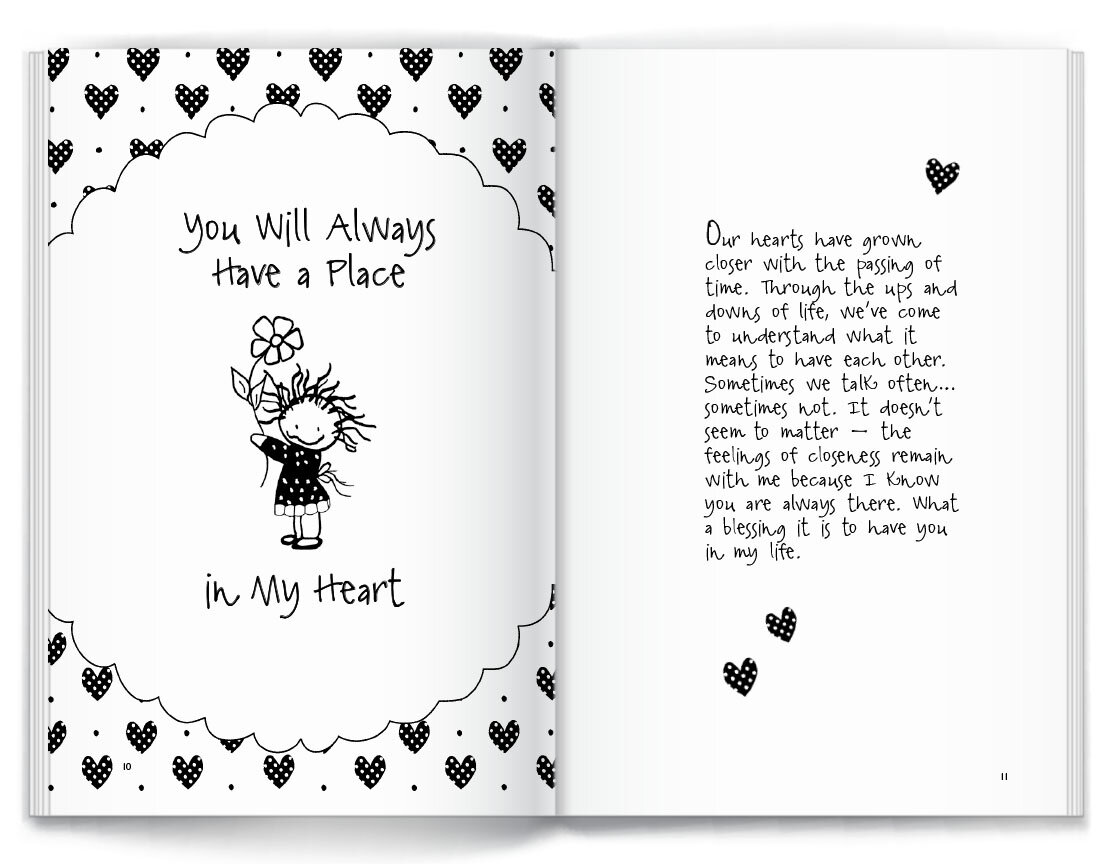 You Will Always
Have a Place
in My Heart
10
Our hearts have grown
closer with the passing of
time. Through the ups and
downs of life, we've come
to understand what it
means to have each other.
Sometimes we talk often...
sometimes not. It doesn't
seem to matter — the
feelings of closeness remain
with me because I know
you are always there. What
a blessing it is to have you
in my life.
11